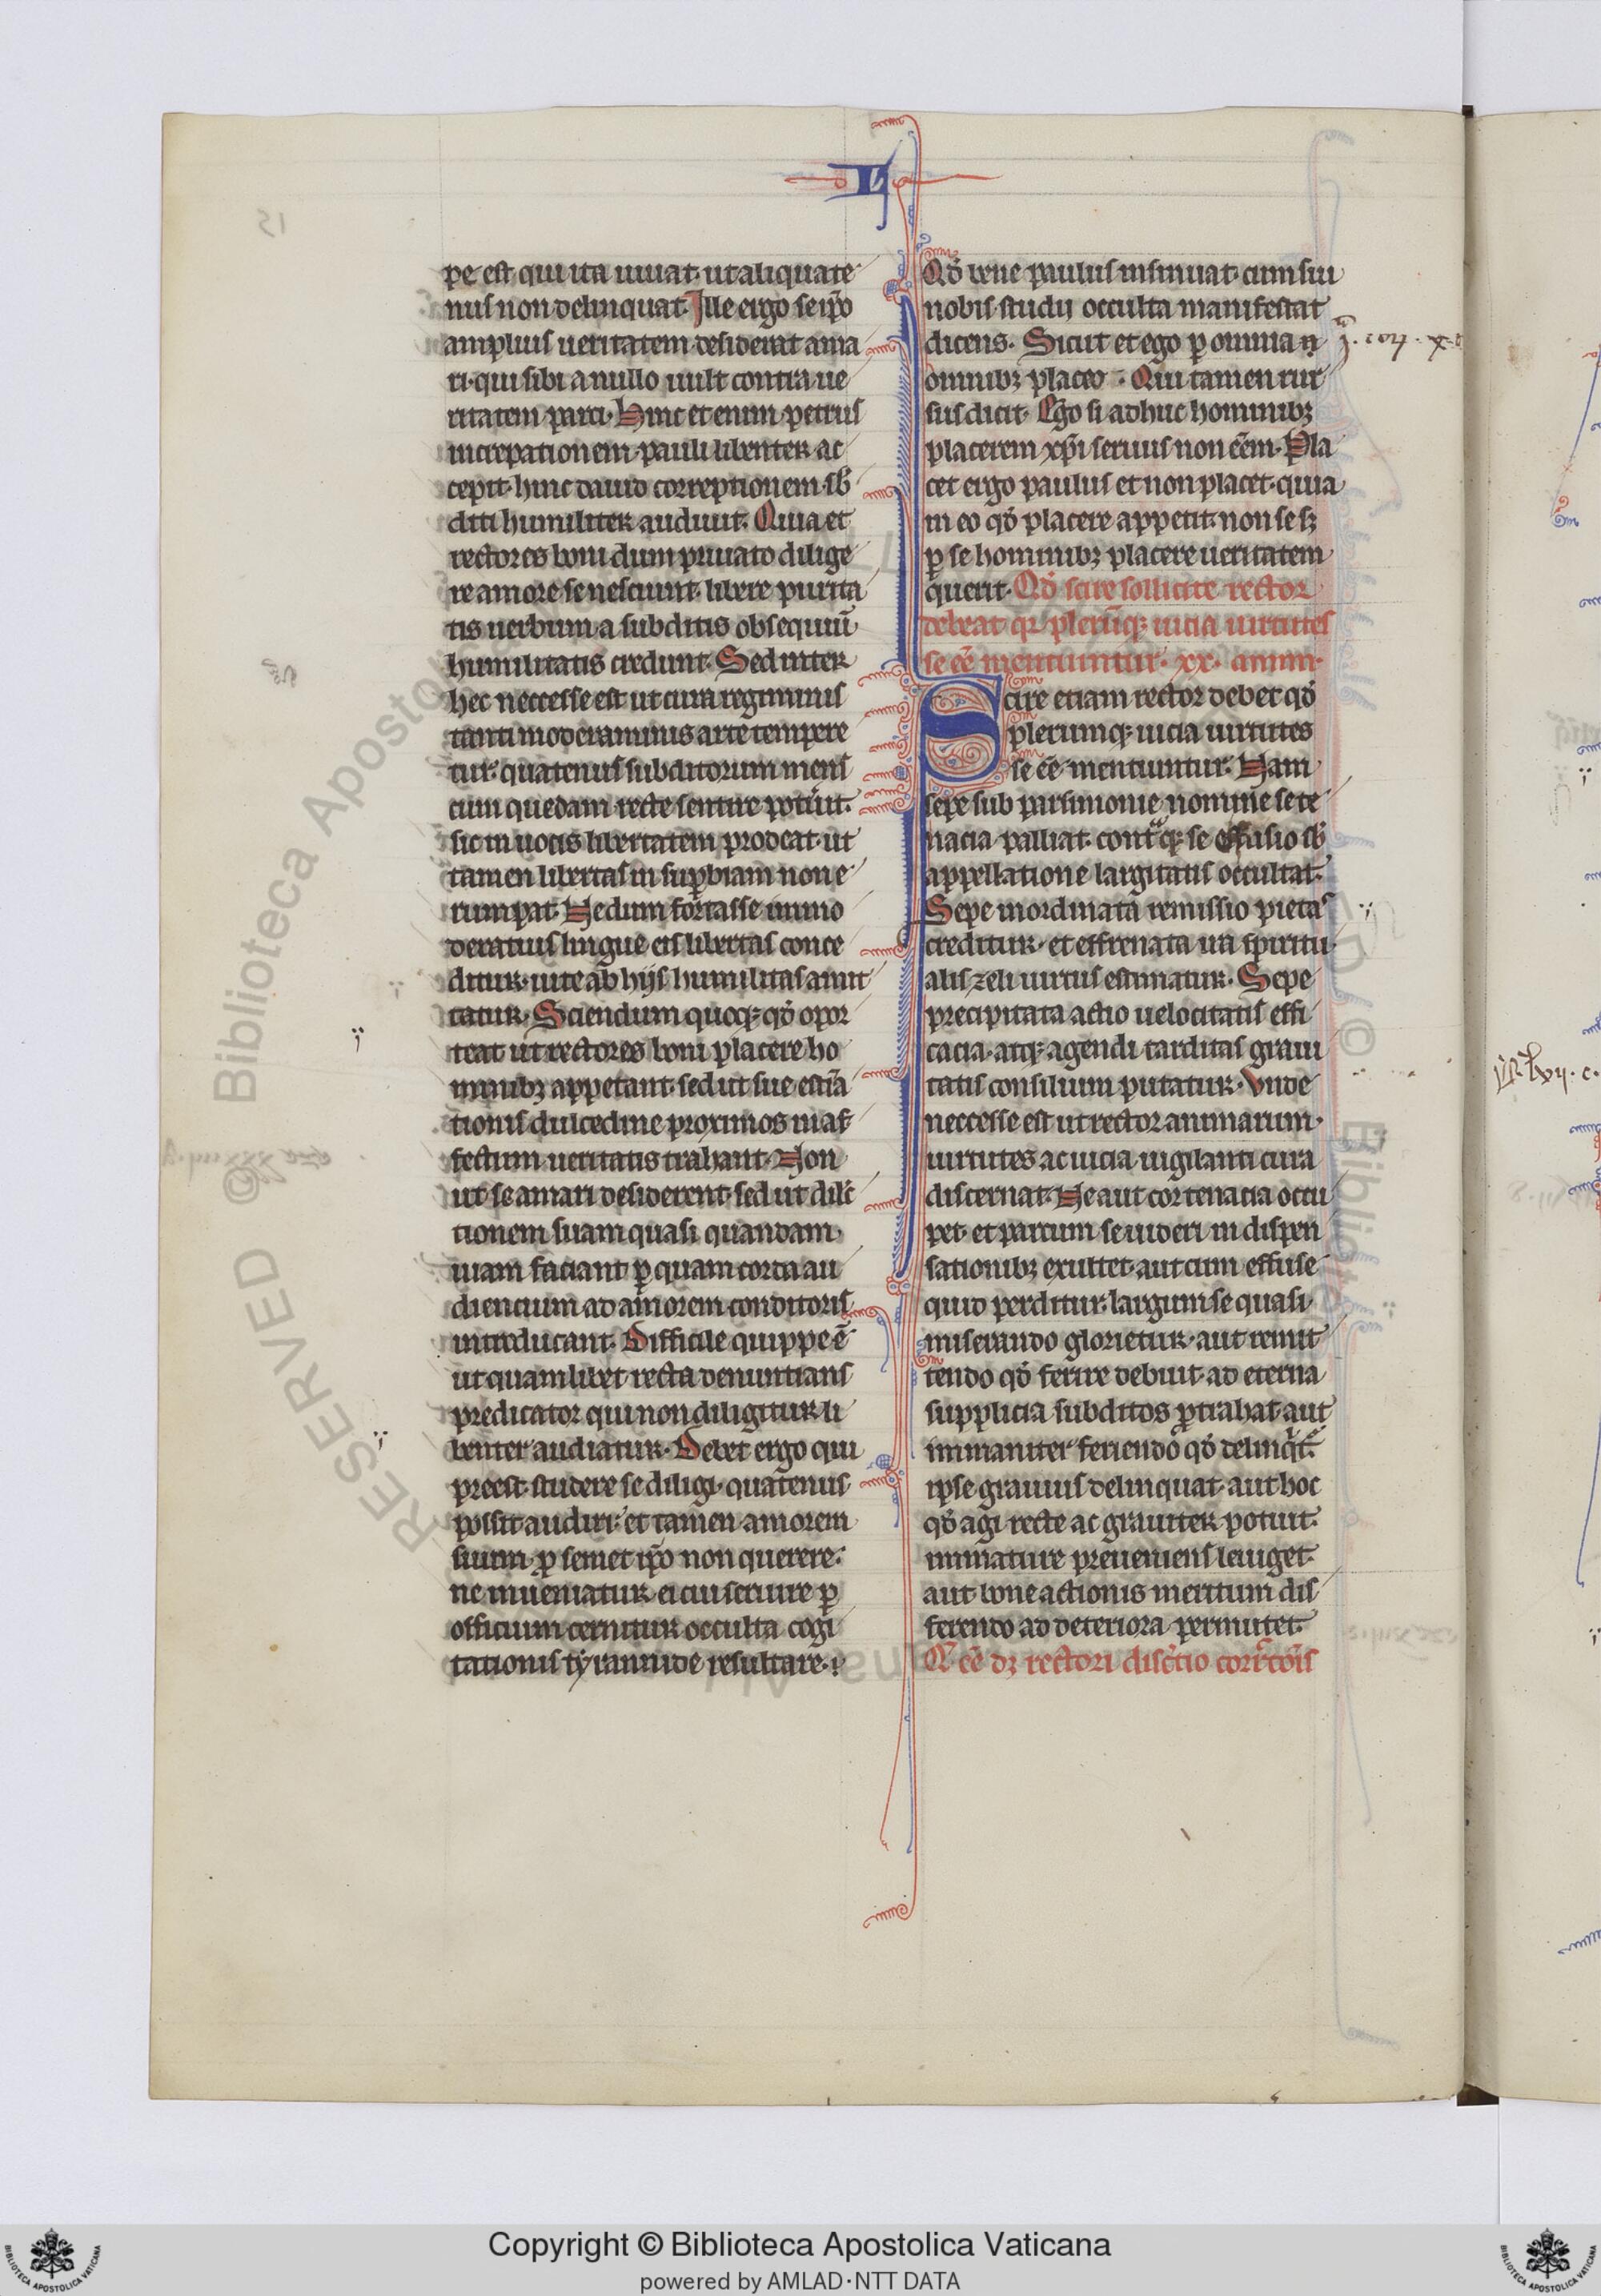 L
pe est qui ita uiuat· ut aliquate
nus non delinquat. Ille ergo se ip̄o
amplius ueritatem desiderat ama
ri· qui sibi a nullo uult contra ue
ritatem parci· Hinc et enim petrus
increpationem pauli libenter ac
cepit· hinc dauid correptionem sb̄
diti humiliter audiuit. Quia et
rectores boni dum priuato dilige
re amore se nesciunt· libere purita
tis uerbum a subditis obsequiū
humilitatis credunt. Sed inter
hec neccesse est ut cura regiminis
tanti moderaminis arte tempere
tur· quatenus subditorum mens
cum quedam recte sentire pot̄uit·
sic in uocis libertatem prodeat· ut
tamen libertas in supbiam non e
rumpat· Nedum fortasse immo
deratius lingue eis libertas conce
ditur· uite ab hijs humilitas amit
tatur. Sciendum quoq; qd̄ opor
teat ut rectores boni placere ho
minibꝫ appetant· sed ut sue estīa
tionis dulcedine proximos in af
fectum ueritatis trahant· Non
ut se amari desiderent· sed ut dilc̄
tionem suam quasi quandam
uiam faciant p̱ quam corda au
diencium ad amorem conditoris
introducant. Difficile quippe ē
ut quamlibet recta denuntians
predicator qui non diligitur li
benter audiatur· Debet ergo qui
preest studere se diligi· quatenus
possit audiri· et tamen amorem
suum p̱ semet ip̄o non querere·
ne inueniatur ei cui seruire p̱
officium cernitur occulta cogi
tationis tyrannide resultare·
Qd̄ bene paulus insinuat· cum sui
nobis studij occulta manifestat
dicens· Sicut et ego p̱ omnia
omnibꝫ placeo· Qui tamen rur
sus dicit· Ego si adhuc hominibꝫ
placerem xp̄i seruus non eēm· Pla
cet ergo paulus et non placet· quia
in eo qd̄ placere appetit· non se sꝫ
p̱ se hominibꝫ placere ueritatem
querit· Qd̄ scire sollicite rector
debeat qr plerūq; uicia uirtutes
se eē mentiuntur· xx·
Scire etiam rector debet qd̄
plerumq; uicia uirtutes
se eē mentiuntur· Nam
sepe sub parsimonie nomine se te
nacia palliat· contq; se effusio sb̄
appellatione largitatis occultat·
Sepe inordinata remissio pietas
creditur· et effrenata ira spiritu
alis zeli uirtus estimatur· Sepe
precipitata actio uelocitatis effi
cacia· atq; agendi tarditas graui
tatis consilium putatur· Vnde
neccesse est ut rector animarum
uirtutes ac uicia uigilanti cura
discernat· Ne aut cor tenacia occu
pet· et parcum se uideri in dispen
sationibꝫ exultet· aut cum effuse
quid perditur· largum se quasi
miserando glorietur· aut remit
tendo qd̄ ferire debuit· ad eterna
supplicia subditos p̱trahat· aut
immaniter feriendo qd̄ delinq̄t·
ipse grauius delinquat· aut hoc
qd̄ agi recte ac grauiter potuit·
inmature preueniens leuiget·
aut bone actionis meritum dif
ferendo ad deteriora permutet·
eē dꝫ rectori disc̄tio
RESERVED © Biblioteca Apostolica
Copyright © Biblioteca Apostolica Vaticana
powered by AMLAD·NTT DATA
BIBLIOTECA APOSTOLICA VATICANA
BIBLIOTECA APOSTOLICA VATICANA